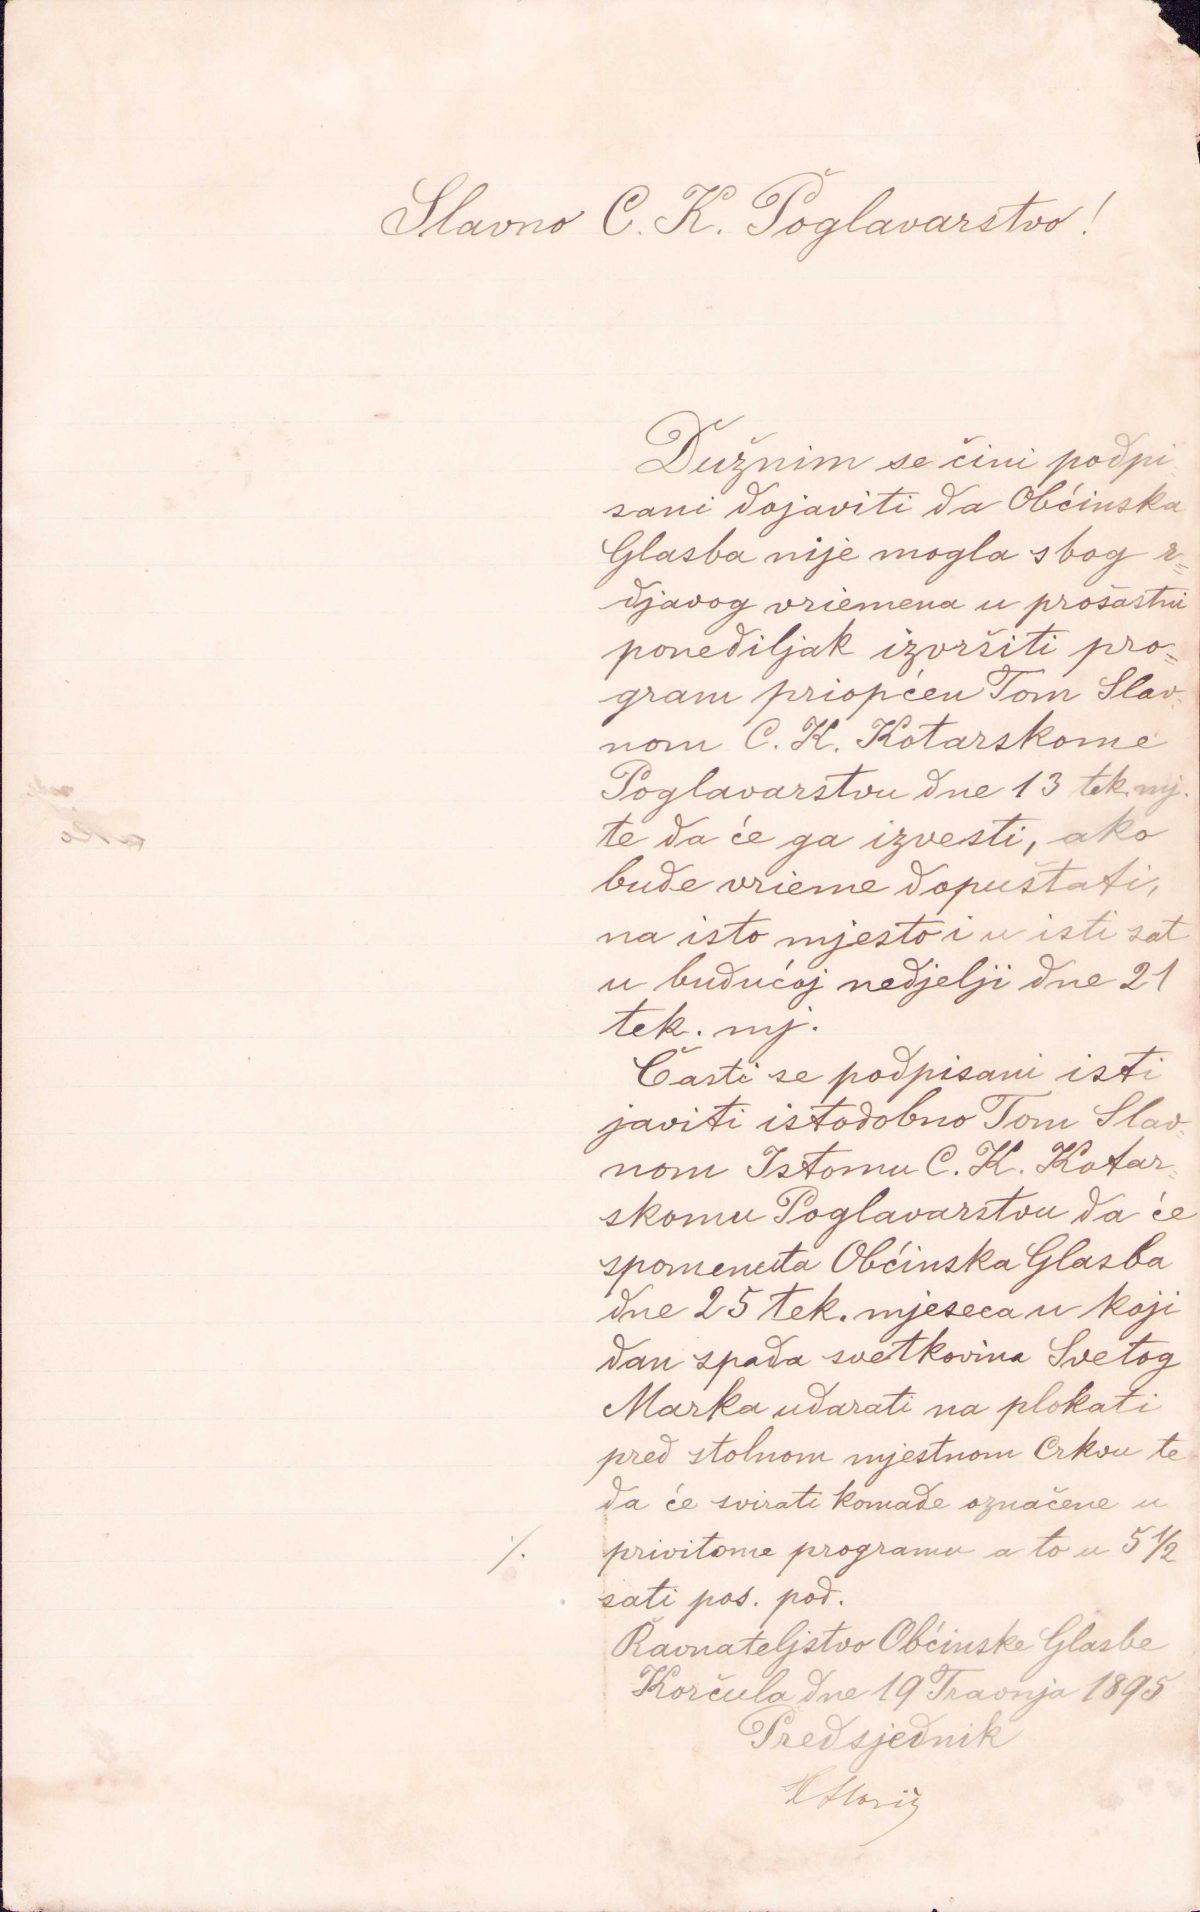 Slavno C. K. Poglavarstvo!
Dužnim se čini podpi
sani dojaviti da Obćinska
Glasba nije mogla sbog r=
djavog vriemena u prošastni
ponediljak izvršiti pro=
gram priopćen Tom Slav=
nom C. K. Kotarskome
Poglavarstvu dne 13 tek. mj.
te da će ga izvesti, ako
bude vrieme dopuštati,
na isto mjesto i u isti sat
u budućoj nedjelji dne 21
tek. mj.
Časti se podpisani isti
javiti istodobno Tom Slav=
nom Istomu C. K. Kotar=
skomu Poglavarstvu da će
spomenuta Obćinska Glasba
dne 25 tek. mjeseca u koji
dan spada svetkovina Svetog
Marka udarati na plokati
pred stolnom mjestnom Crkvu te
da će svirati komade označene u
./. privitome programu a to u 5 1/2
sati pos. pod.
Ravnateljstvo Obćinske Glasbe
Korčula dne 19 Travnja 1895
Predsjednik